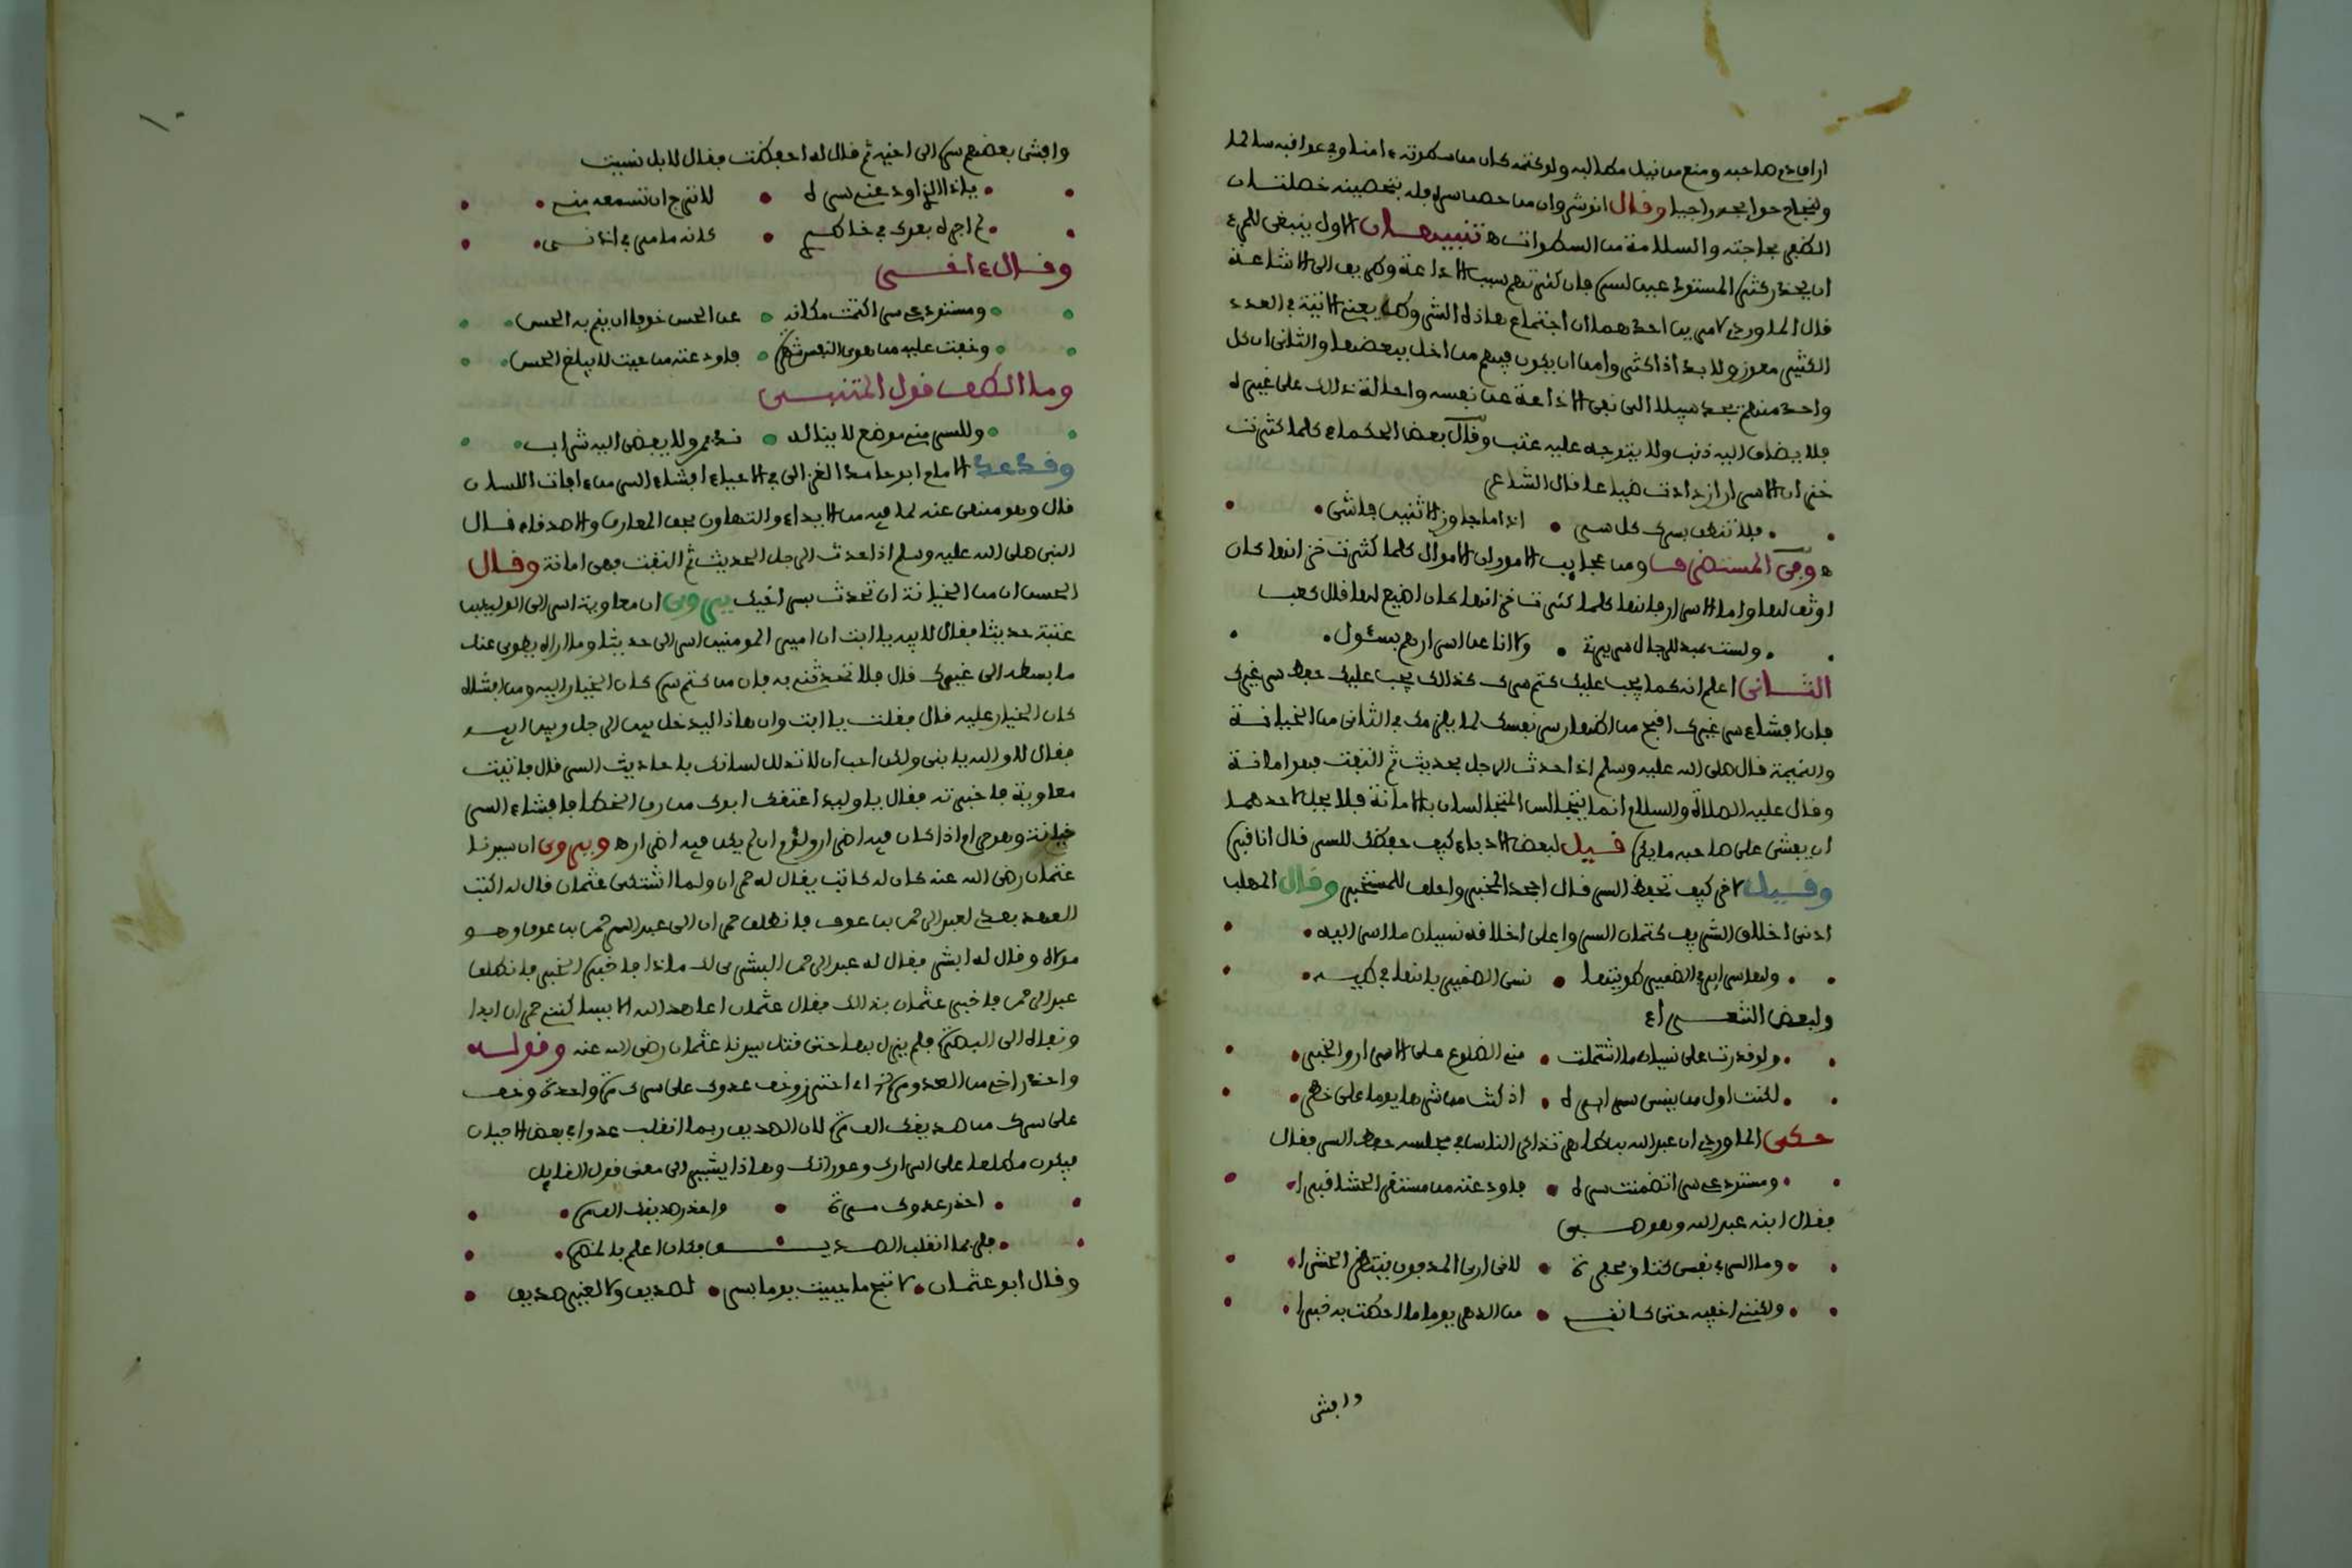 اراق دم صاحبه ومنع من نيل مطالبه ولو كتمه كان من سطوته ءامنا وفي عواقبه سالما
ولنجاح حوائجه راجيا وقال انوشروان من حصن سره فله بتحصينه خصلتان
الظفر بحاجته والسلامة من السطوات ه تنبيهان الاول ينبغي للمرء
ان يحذر كثرة المستودعين لسره فان كثرتهم سبب الاذاعة وطريق الى الاشاعة
قال الماوردي لامرين احدهما ان اجتماع هاذه الشروط يعني الاتية في العدد
الكثير معوز ولا بد اذا كثروا من ان يكون فيهم من اخل ببعضها والثاني ان كل
واحد منهم يجد سبيلا الى نفي الاذاعة عن نفسه واحالة ذالك على غيره
فلا يضاف اليه ذنب ولا يتوجه عليه عتب وقال بعض الحكماء كلما كثرت
خزان الاسرار ازدادت ضياعا قال الشاعر
فلا تنطق بسرك كل سر • اذا ما جاوز الاثنين فاشي
ه وفي المستطرف ومن عجايب الامور ان الاموال كلما كثرت خزانها كان
اوثق لها واما الاسرار فانها كلما كثرت خزانها كان اضيع لها قال كعب
ولست بمبد للرجال سريرة • ولا انا عن اسرارهم بسئول
الثاني اعلم انه كما يجب عليك كتم سرك كذالك يجب عليك حفظ سر غيرك
فان افشاء سر غيرك اقبح من اظهار سر نفسك لما يلزمك في الثاني من الخيانة
والنميمة قال صلى الله عليه وسلم اذا حدث الرجل بحديث ثم التفت فهو امانة
وقال عليه الصلاة والسلام انما يتجالس المتجالسان بالامانة فلا يحل لاحدهما
ان يفشي على صاحبه ما يكره قيل لبعض الادباء كيف حفظك للسر قال انا قبره
وقيل لاخر كيف تحفظ السر قال اجحد المخبر واحلف للمستخبر وقال المهلب
ادنى اخلاق الشريف كتمان السر واعلى اخلاقه نسيان ما اسر اليه
ولها سراير في الضمير طويتها • نسي الضمير بانها في طيه
ولبعض الشعراء
ولو قدرت على نسيان ما اشتملت • مني الضلوع على الاسرار والخبر
لكنت اول من ينسى سرايره • اذ كنت من نشرها يوما على خطر
حكى الماوردي ان عبد الله بن طاهر تذاكر الناس في مجلسه حفظ السر فقال
ومستودعي سرا تضمنت سره • فاودعته من مستقر الحشا قبرا
فقال ابنه عبد الله وهو صبي
وما السر في نفسي كثاو بحفرة • لاني ارى المدفون ينتظر الحشرا
ولكنني اخفيه حتى كانني • من الدهر يوما ما احطت به خبرا
وافشى
وافشى بعضهم سره الى اخيه ثم قال له احفظت فقال لا بل نسيت
ياذا الذي اودعني سره • لا ترج ان تسمعه مني
لم اجره بعدك في خاطري • كانه ما مر في اذني
وقال ءاخر
ومستودعي سرا كتمت مكانه • عن الحس خوفا ان ينم به الحس
وخفت عليه من هوى النفس شهرة • فاودعته من حيث لا يبلغ الحس
وما الطف قول المتنبي
وللسر مني موضع لا يناله • نديم ولا يفضي اليه شراب
وقد عد الامام ابو حامد الغزالي في الاحياء افشاء السر من ءافات اللسان
قال وهو منهي عنه لما فيه من الايذاء والتهاون بحق المعارف والاصدقاء قال
النبي صلى الله عليه وسلم اذا حدث الرجل الحديث ثم التفت فهي امانة وقال
الحسن ان من الخيانة ان تحدث بسر اخيك يروى ان معاوية اسر الى الوليد بن
عتبة حديثا فقال لابيه يا ابت ان امير المومنين اسر الي حديثا وما اراه يطوي عنك
ما بسطه الى غيرك قال فلا تحدثني به فان من كتم سره كان الخيار اليه ومن افشاه
كان الخيار عليه قال فقلت يا ابت وان هاذا ليدخل بين الرجل وبين ابيه
فقال لا والله يا بني ولكن احب ان لا تذلل لسانك باحاديث السر قال فاتيت
معاوية فاخبرته فقال يا وليد اعتقك ابوك من رق الخطا فافشاء السر
خيانة وهو حرام اذا كان فيه اضرار ولؤم ان لم يكن فيه اضرار ه ويروى ان سيدنا
عثمان رضي الله عنه كان له كاتب يقال له حمران ولما اشتكى عثمان قال له اكتب
العهد بعدي لعبد الرحمن بن عوف فانطلق حمران الى عبد الرحمن بن عوف وهو
مولاه وقال له ابشر فقال له عبد الرحمن البشرى لك ماذا فاخبره الخبر فانطلق
عبد الرحمن فاخبر عثمان بذالك فقال عثمان اعاهد الله الا يساكنني حمران ابدا
ونفاه الى البصرة فلم يزل بها حتى قتل سيدنا عثمان رضي الله عنه وقوله
واحذر اخي من العدو مرة اي احترز وخف عدوك على سرك مرة واحدة وخف
على سرك من صديقك الف مرة لان الصديق ربما انقلب عدوا في بعض الاحيان
فيكون مطلعا على اسرارك وعوراتك وهاذا يشير الى معنى قول القايل
احذر عدوك مرة • واحذر صديقك الف مره
فلربما انقلب الصديق فكان اعلم بالمضره
وقال ابو عثمان • لا تبح ما حييت يوما بسر • لصديق ولا لغير صديق